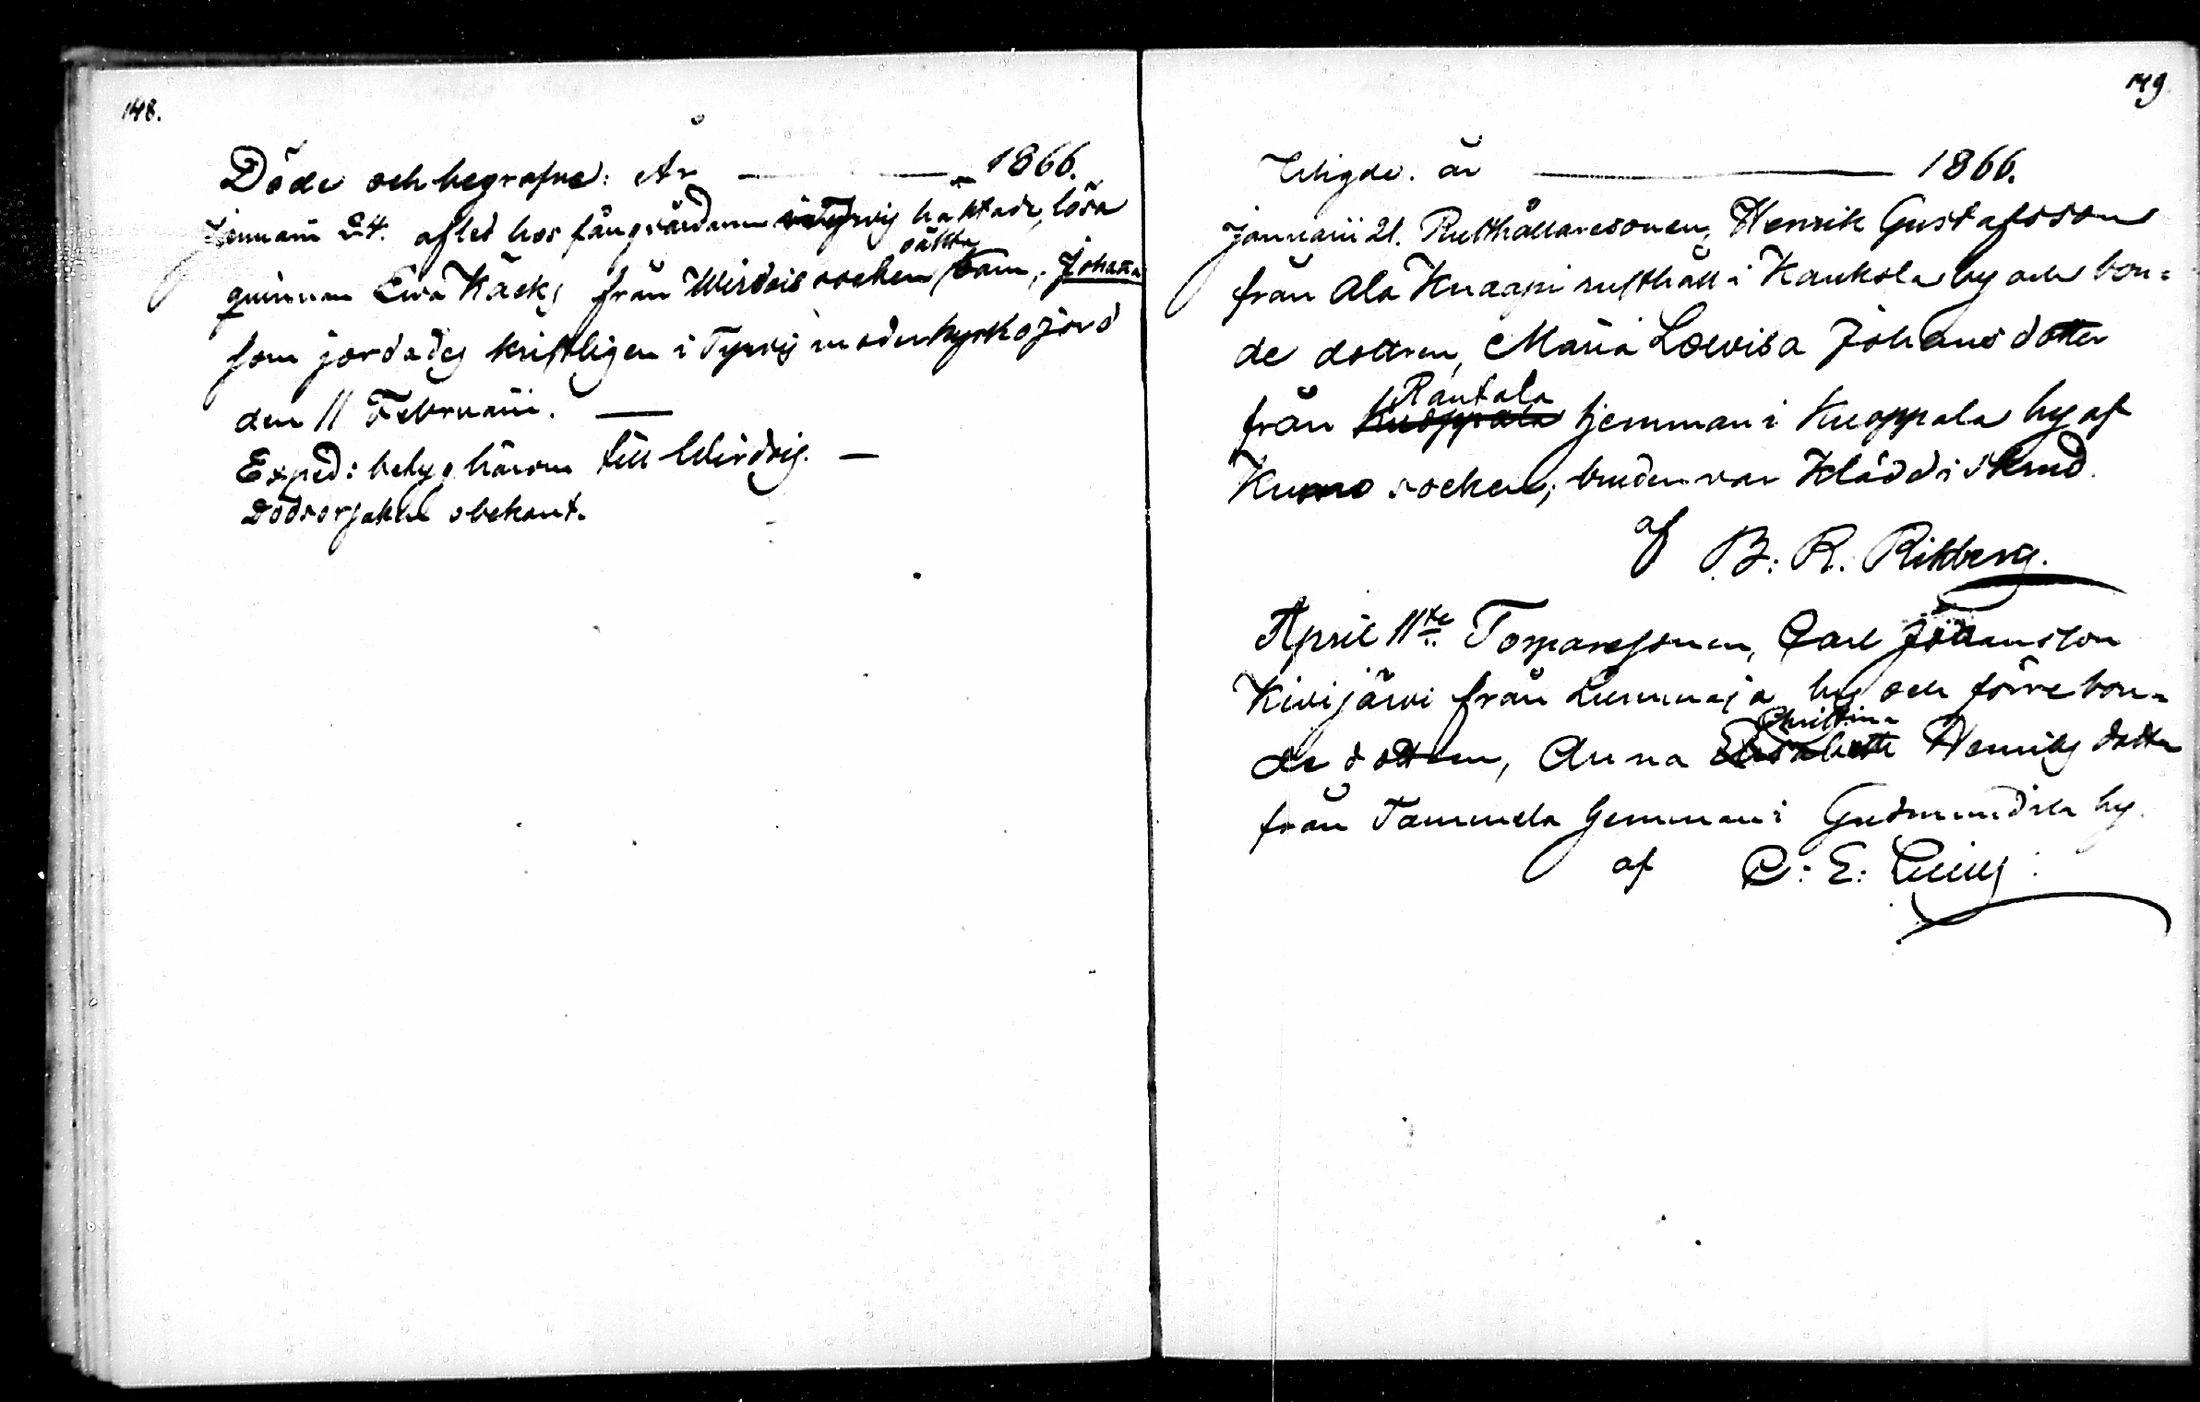 148.
Döde och begrafne: År — — 1866.
Januarii 24. afled hos fångvårdaren i Tyrvis häktade, lösa
qvinnan Eva Käcks från Wirdois socken oäkta barn, Johanna
som jordades kristligen i Tyrvis moderkyrkojord
den 11 Februarii. —
Exped: betyg härom till Wirdois. —
Dödsorsaken obekant.
149
Wigde. år — 1866.
Januarii 21. Rusthållaresonen, Henrik Gustafsson
från Ala Knaapi rusthåll i Kaukola by och bon=
de dottren, Maria Lowisa Johansdotter
från Kuoppala Rantala hemman i Kuoppala by af
Kumo socken; bruden var klädd i skrud.
af B: R: Rikberg.
April 11te Torparesonen, Carl Johansson
Kivijärvi från Liinmaja by och förre bon=
de dottren, Anna Elisabeth Christina Henriks dotter
från Tammela hemman i Gudmundila by.
af C: E: